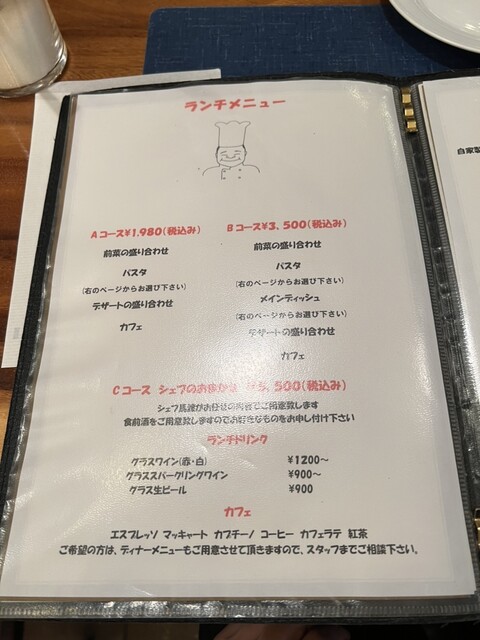 ランチメニュー
Aコース¥1,980(税込み)
前菜の盛り合わせ
パスタ
(右のページからお選び下さい)
デザートの盛り合わせ
カフェ
Bコース¥3,500(税込み)
前菜の盛り合わせ
パスタ
(右のページからお選び下さい)
メインディッシュ
(右のページからお選び下さい)
デザートの盛り合わせ
カフェ
Cコース シェフのおまかせ ¥5,500(税込み)
シェフ馬渡がお任せの内容でご用意致します
食前酒をご用意致しますのでお好きなものをお申し付け下さい
ランチドリンク
グラスワイン(赤・白) ¥1200〜
グラススパークリングワイン ¥900〜
グラス生ビール ¥900
カフェ
エスプレッソ マッキャート カプチーノ コーヒー カフェラテ 紅茶
ご希望の方は、ディナーメニューもご用意させて頂きますので、スタッフまでご相談下さい。
自家製